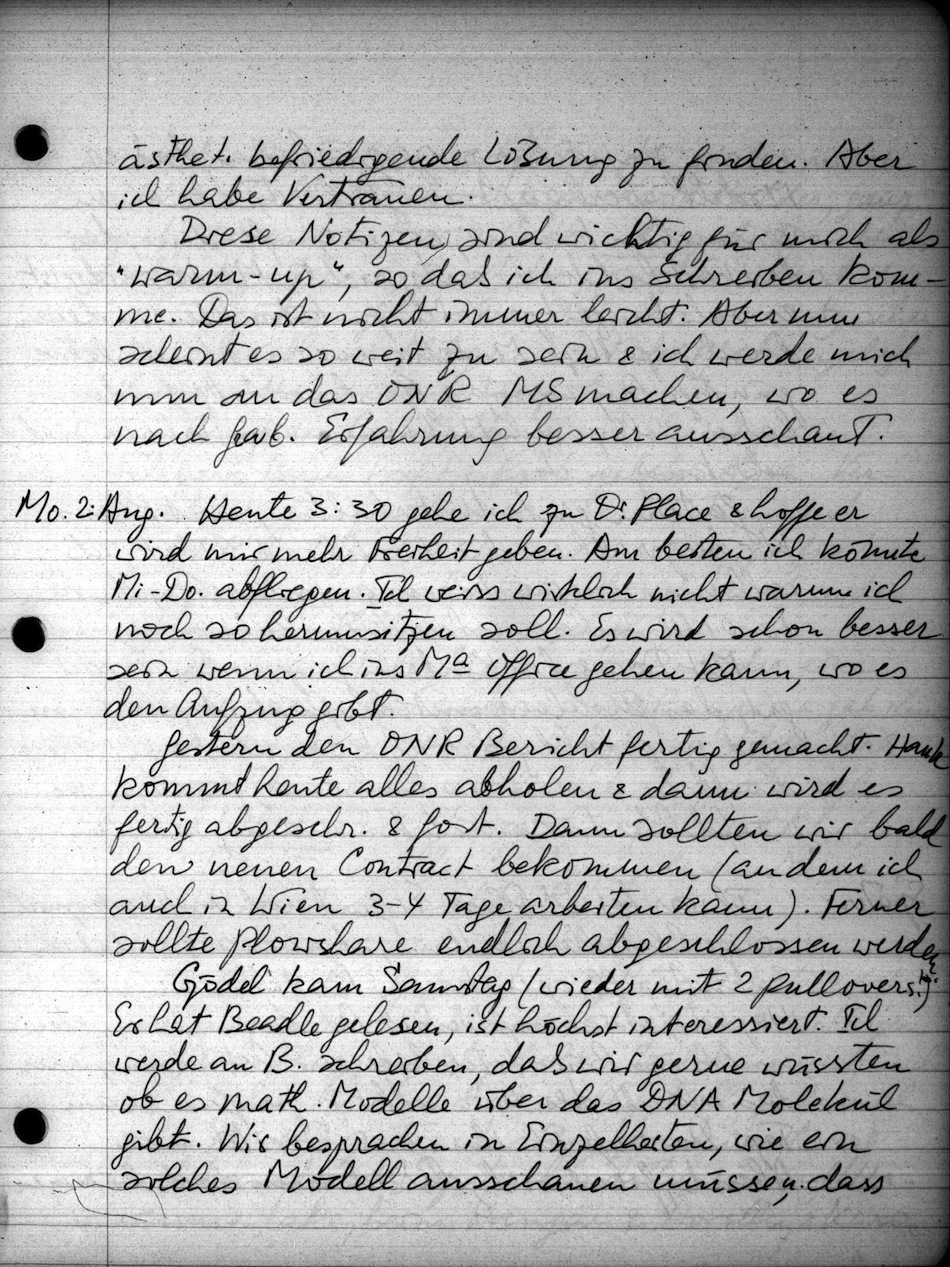 ästhet. befriedigende Lösung zu finden. Aber
ich habe Vertrauen.
Diese Notizen sind wichtig für mich als
"warm-up", so daß ich ins Schreiben kom-
me. Das ist nicht immer leicht. Aber nun
scheint es so weit zu sein & ich werde mich
nun an das ONR MS machen, wo es
nach Erfahrung besser ausschaut.
Mo. 2. Aug. Heute 3:30 gehe ich zu Dr. Place & hoffe er
wird mir mehr Freiheit geben. Am besten ich könnte
Mi-Do. abfliegen. Ich weiss wirklich nicht warum ich
noch so herumsitzen soll. Es wird schon besser
sein wenn ich ins Ma Office gehen kann, wo es
den Aufzug gibt.
Gestern den ONR Bericht fertig gemacht. Hank
kommt heute alles abholen & dann wird es
fertig abgeschr. & fort. Dann sollten wir bald
den neuen Contract bekommen (an dem ich
auch in Wien 3-4 Tage arbeiten kann). Ferner
sollte Plowshare endlich abgeschlossen werden.
Gödel kam Samstag (wieder mit 2 Pullovers!).
Er hat Beadle gelesen, ist höchst interessiert. Ich
werde an B. schreiben, daß wir gerne wüssten
ob es math. Modelle über das DNA Molekül
gibt. Wir besprachen in Einzelheiten, wie ein
solches Modell ausschauen müsse, dass